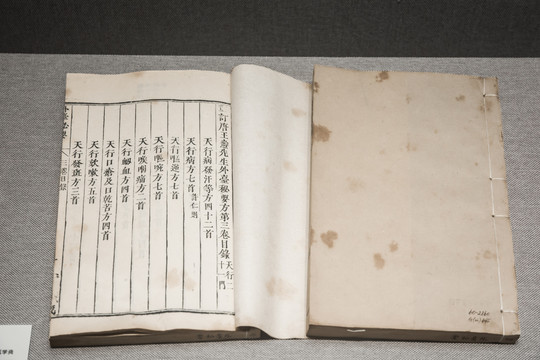 訂唐王燾先生外臺秘要方第三卷目錄 天行二十一門
天行病發汗等方四十二首
天行病方七首
天行嘔逆方七首
天行嘔啘方七首
天行喉咽痛方二首
天行衄血方四首
天行口瘡及口乾苦方四首
天行欬嗽方五首
天行發斑方三首